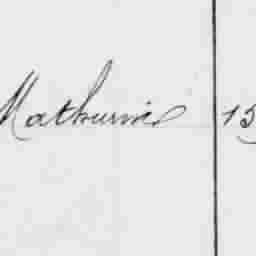 Mathurine 15